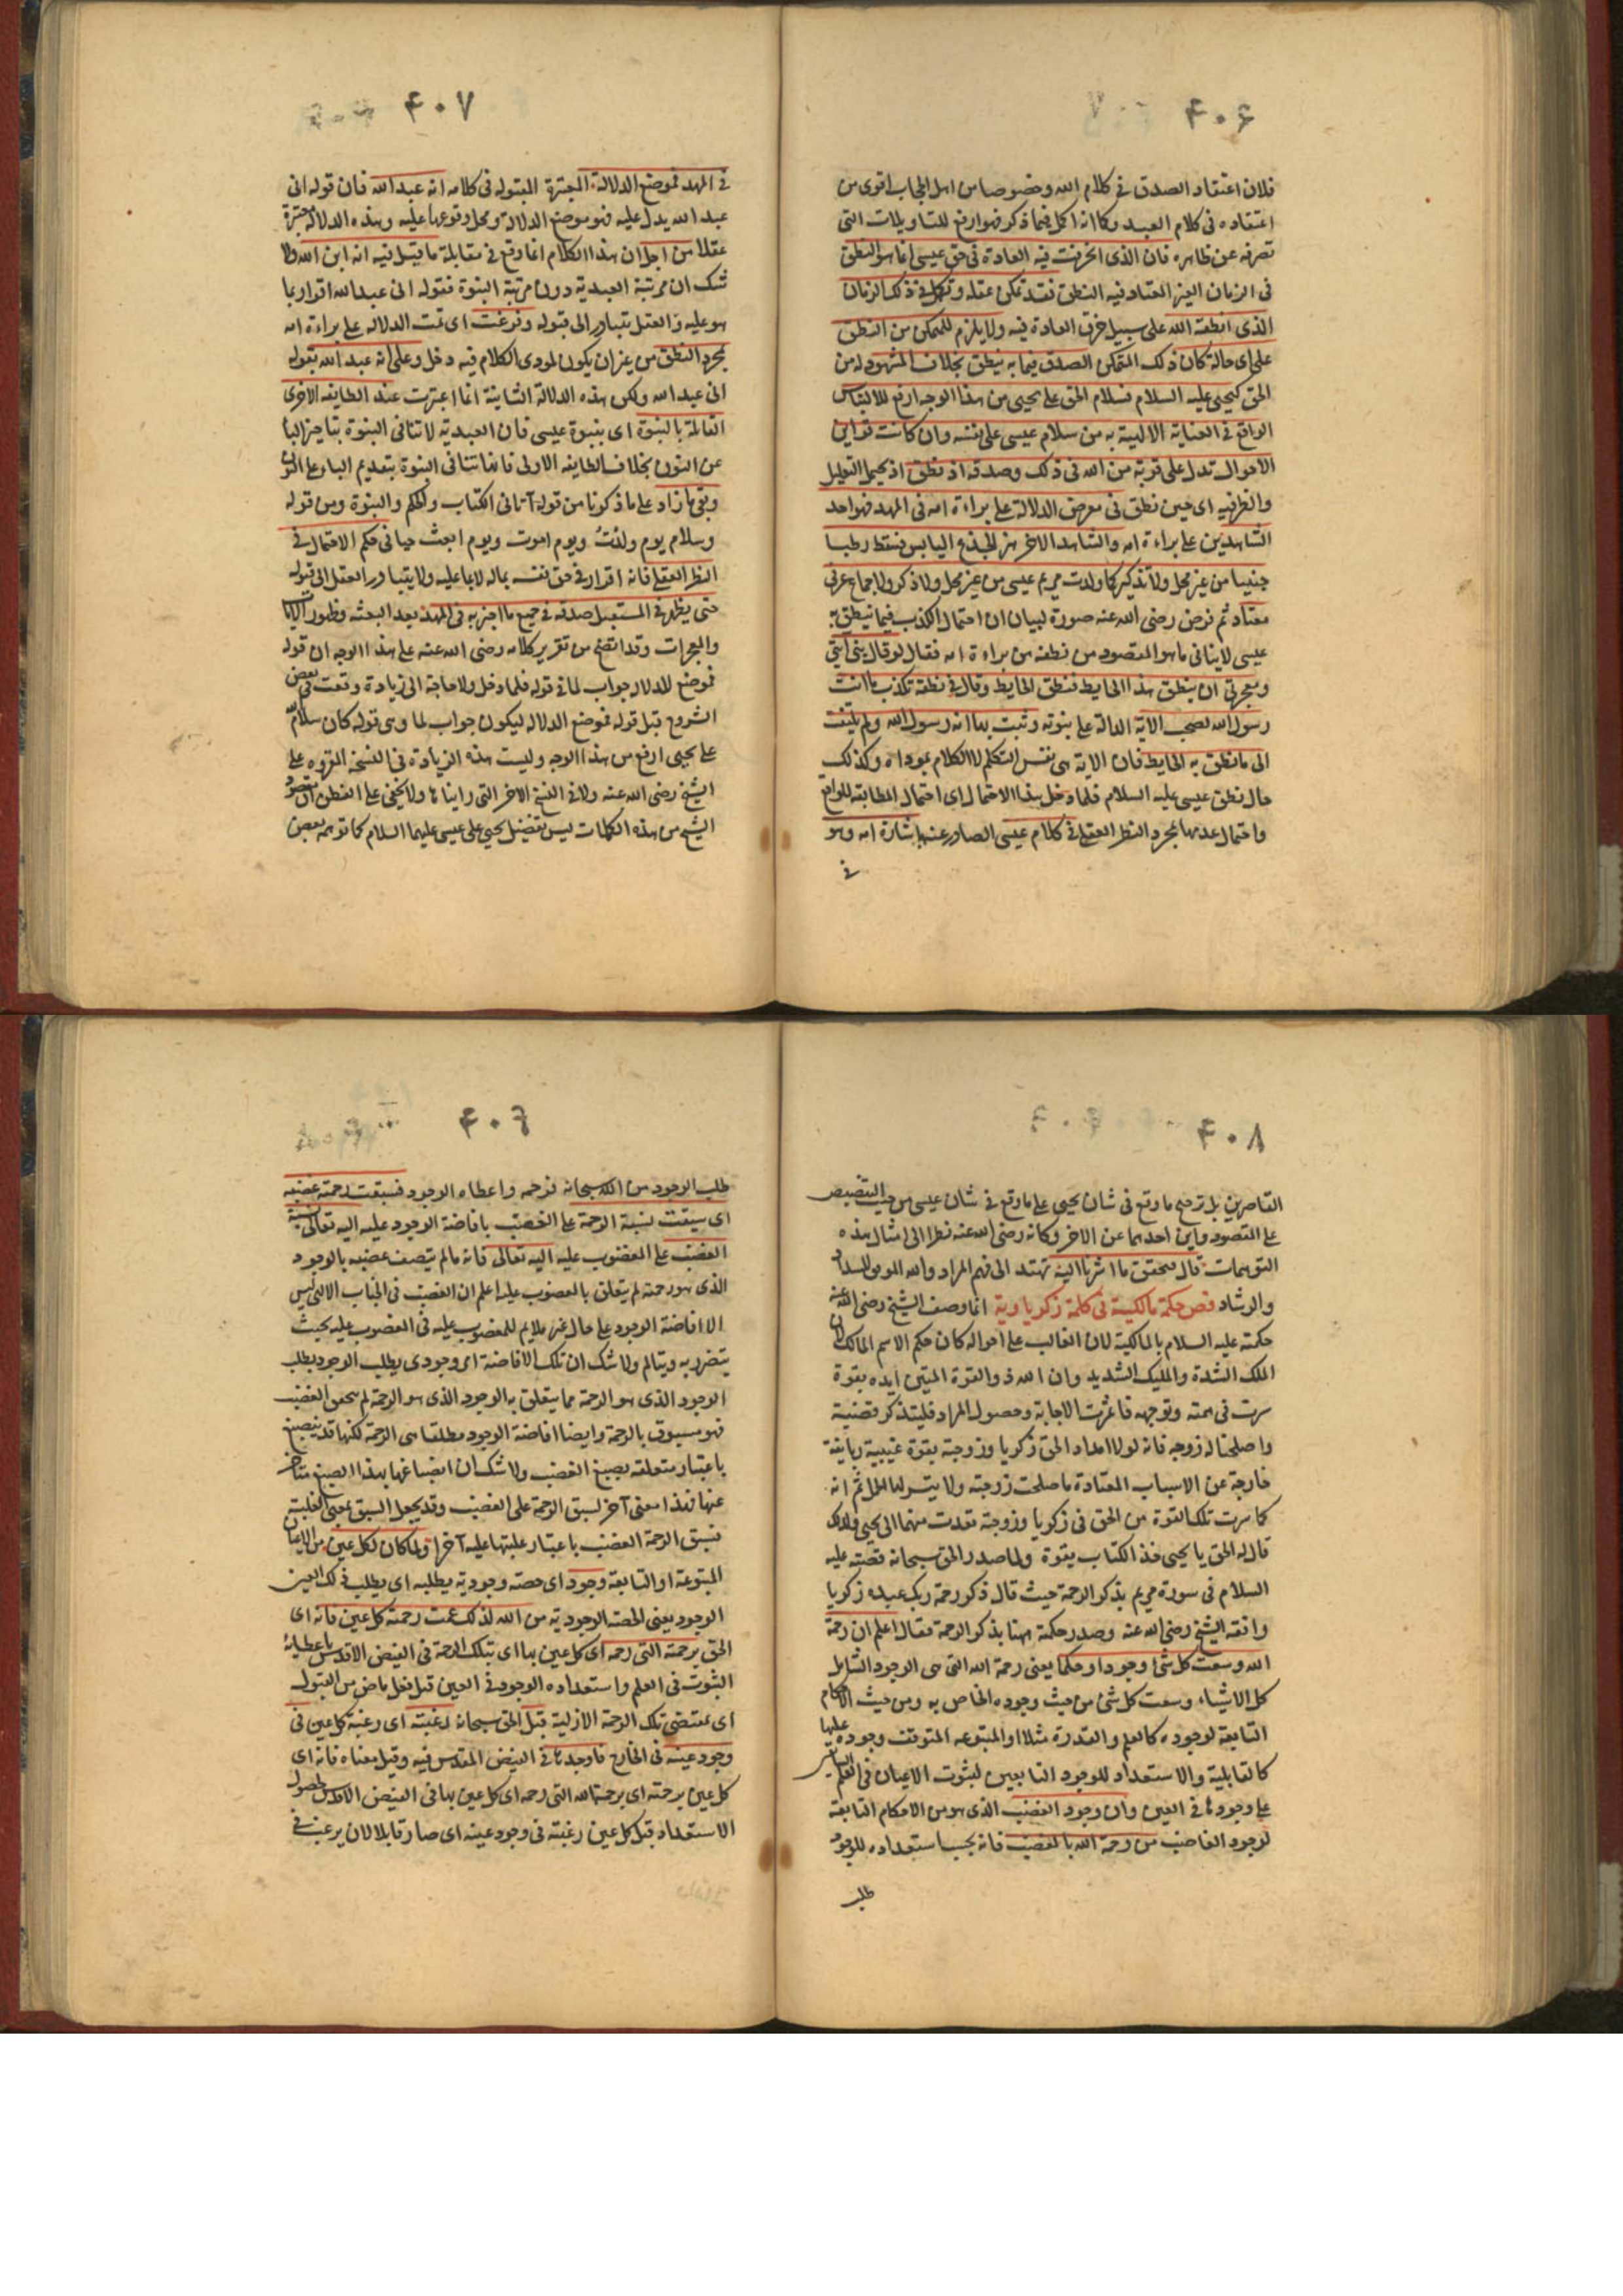 ۴۰۶
فلان اعتقاد الصدق فى كلام الله وخصوصا من اهل الحجاب اقوى من
اعتقاده فى كلام العبد وكما انه اكمل فيما ذكر فهو ارفع للتاويلات التى
تصرفه عن ظاهره فان الذى انخرقت فيه العادة فى حق عيسى انما هو النطق
فى الزمان الغير المعتاد فيه النطق فقد تمكن عقله وتكمل فى ذلك الزمان
الذى انطقه الله على سبيل خرق العادة فيه ولا يلزم للمتمكن من النطق
على اى حالة كان ذلك المتمكن الصدق فيما به ينطق بخلاف المشهود له من
الحق كيحيى عليه السلام فسلام الحق على يحيى من هذا الوجه ارفع للالتباس
الواقع فى العناية الالهية به من سلام عيسى على نفسه وان كانت قراين
الاحوال تدل على قربه من الله فى ذلك وصدقه اذ نطق اذ يحتمل التعليل
والظرفيه اى حين نطق فى معرض الدلالة على براءة امه فى المهد فهو احد
الشاهدين على براءة امه والشاهد الاخر هز الجذع اليابس فسقط رطبا
جنيا من غير فحل ولا تذكير كما ولدت مريم عيسى من غير فحل ولا ذكر ولا جماع عرفى
معتاد ثم فرض رضى الله عنه صورة لبيان ان احتمال الكذب فيما ينطق به
عيسى لا ينافى ما هو المقصود من نطقه من براءة امه فقال لو قال نبى آيتى
ومعجزتى ان ينطق هذا الحايط فنطق الحايط وقال فى نطقه تكذب ما انت
رسول الله لصحت الاية الدالة على نبوته وثبت بها انه رسول الله ولم يلتفت
الى ما نطق به الحايط فان الاية هى نفس التكلم لا الكلام بموداه وكذلك
حال نطق عيسى عليه السلام فلما دخل هذا الاحتمال اى احتمال المطابقه للواقع
واحتمال عدمها بمجرد النظر العقلى فى كلام عيسى الصادر عنه باشارة امه وهو
فى
۴۰۷
فى المهد فموضع الدلالة المعتبرة المقبوله فى كلامه انه عبد الله فان قوله انى
عبد الله يدل عليه فهو موضع الدلالة ومحل وقوعها عليه وهذه الدلالة معتبرة
عقلا من اجل ان هذا الكلام انما وقع فى مقابلة ما قيل فيه انه ابن الله ولا
شك ان مرتبة العبدية دون مرتبة البنوة فقوله انى عبد الله اقرار بما
هو عليه والعقل يتبادر الى قبوله وفرغت اى تمت الدلاله على براءة امه
بمجرد النطق من غير ان يكون لمودى الكلام فيه دخل وعلى انه عبد الله بقوله
انى عبد الله ولكن هذه الدلالة الثانية انما اعتبرت عند الطايفه الاخرى
القائلة بالنبوة اى بنبوة عيسى فان العبدية لا تنافى النبوة بتاخير البا
عن النون بخلاف الطايفه الاولى فانها تنافى البنوة بتقديم الباء على النون
وبقى ما زاد على ما ذكرنا من قوله آتانى الكتاب والحكم والنبوة ومن قوله
وسلام يوم ولدت ويوم اموت ويوم ابعث حيا فى حكم الاحتمال فى
النظر العقلى فانه اقرار فى حق نفسه بما له لا بما عليه ولا يتبادر العقل الى قبوله
حتى يظهر فى المستقبل صدقه فى جميع ما اخبر به فى المهد بعد البعثه وظهور الايات
والمعجزات وقد اتضح من تقرير كلامه رضى الله عنه على هذا الوجه ان قوله
فموضع للدلالة جواب لما فى قوله فلما دخل ولا حاجة الى زيادة وقعت فى بعض
الشروح قبل قوله فموضع الدلاله ليكون جواب لما وهى قوله كان سلام الله
على يحيى ارفع من هذا الوجه وليست هذه الزيادة فى النسخة المقروه على
الشيخ رضى الله عنه ولا فى النسخ الاخر التى رايناها ولا يخفى على الفطن ان مقصود
الشيخ من هذه الكلمات ليس تفضيل يحيى على عيسى عليهما السلام كما توهمه بعض
۴۰۸
القاصرين بل ترجيح ما وقع فى شان يحيى على ما وقع فى شان عيسى من حيث التنصيص
على المقصود واين احدهما عن الاخر وكانه رضى الله عنه نظرا الى امثال هذه
التوهمات قال فتحقق ما اشرنا اليه تهتد الى فهم المراد والله الموفق للسداد
والرشاد فص حكمة مالكية فى كلمة زكرياوية انما وصف الشيخ رضى الله عنه
حكمته عليه السلام بالمالكية لان الغالب على احواله كان حكم الاسم المالك لان
الملك الشدة والمليك الشديد وان الله ذو القوة المتين ايده بقوة
سرت فى همته وتوجهه فاثمرت الاجابة وحصول المراد فليتذكر قضية
واصلحنا له زوجه فانه لولا امداد الحق زكريا وزوجته بقوة غيبية ربانية
خارجة عن الاسباب المعتادة ما صلحت زوجته ولا يتسر لها الحمل ثم انه
كما سرت تلك القوة من الحق فى زكريا وزوجته تعدت منهما الى يحيى ولذلك
قال له الحق يا يحيى خذ الكتاب بقوة ولما صدر الحق سبحانه قصته عليه
السلام فى سورة مريم بذكر الرحمة حيث قال ذكر رحمة ربك عبده زكريا
وافقه الشيخ رضى الله عنه وصدر حكمته ههنا بذكر الرحمة فقال اعلم ان رحمة
الله وسعت كل شئ وجودا وحكما يعنى رحمة الله التى هى الوجود الشامل
كل الاشياء وسعت كل شئ من حيث وجوده الخاص به ومن حيث احكامه
التابعة لوجوده كالعلم والقدرة مثلا او المتبوعه المتوقف وجوده عليها
كالقابلية والاستعداد للوجود التابعين لثبوت الاعيان فى العلم السابق
على وجودها فى العين وان وجود الغضب الذى هو من الاحكام التابعة
لوجود الغاضب من رحمة الله بالغضب فانه بحسب استعداده للوجود
طلب
۴۰۹
طلب الوجود من الله سبحانه فرحمه واعطاه الوجود فسبقت رحمته غضبه
اى سبقت نسبة الرحمة على الغضب بافاضة الوجود عليه اليه تعالى نسبة
الغضب على المغضوب عليه اليه تعالى فانه ما لم يتصف غضبه بالوجود
الذى هو رحمته لم يتعلق بالمغضوب عليه اعلم ان الغضب فى الجناب الالهى ليس
الا افاضة الوجود على حال غير ملايم للمغضوب عليه فى المغضوب عليه بحيث
يتضرر به ويتالم ولا شك ان تلك الافاضة اى وجودى يطلب الوجود بطلب
الوجود الذى هو الرحمة مما يتعلق به الوجود الذى هو الرحمة لم يتحقق الغضب
فهو مسبوق بالرحمة وايضا افاضة الوجود مطلقا هى الرحمة لكنها قد ينصبغ
باعتبار متعلقه بصبغ الغضب ولا شك ان انصباغها بهذا الصبغ متاخر
عنها فهذا معنى آخر لسبق الرحمة على الغضب وقد يجعل السبق بمعنى الغلبة
فسبق الرحمة الغضب باعتبار غلبتها عليه آخرا ولما كان لكل عين من الاعيان
المتبوعة او التابعة وجود اى حصته وجودية يطلبه اى يطلب ذلك العين
الوجود يعنى الحصة الوجودية من الله لذلك عمت رحمته كل عين فانه اى
الحق برحمته التى رحمه اى كل عين بها اى بتلك الرحمة فى الفيض الاقدس باعطائه
الثبوت فى العلم واستعداده الوجود فى العين قبل فعل ماض من القبول
اى بمقتضى تلك الرحمة الازلية قبل الحق سبحانه رغبته اى رغبة كل عين فى
وجود عينه فى الخارج فاوجدها فى الفيض المقدس فيه وقيل معناه فانه اى
كل عين برحمته اى برحمة الله التى رحمه اى كل عين بها فى الفيض الاقدس لحصول
الاستعداد قبل كل عين رغبته فى وجود عينه اى صار قابلا لان يرغب فى